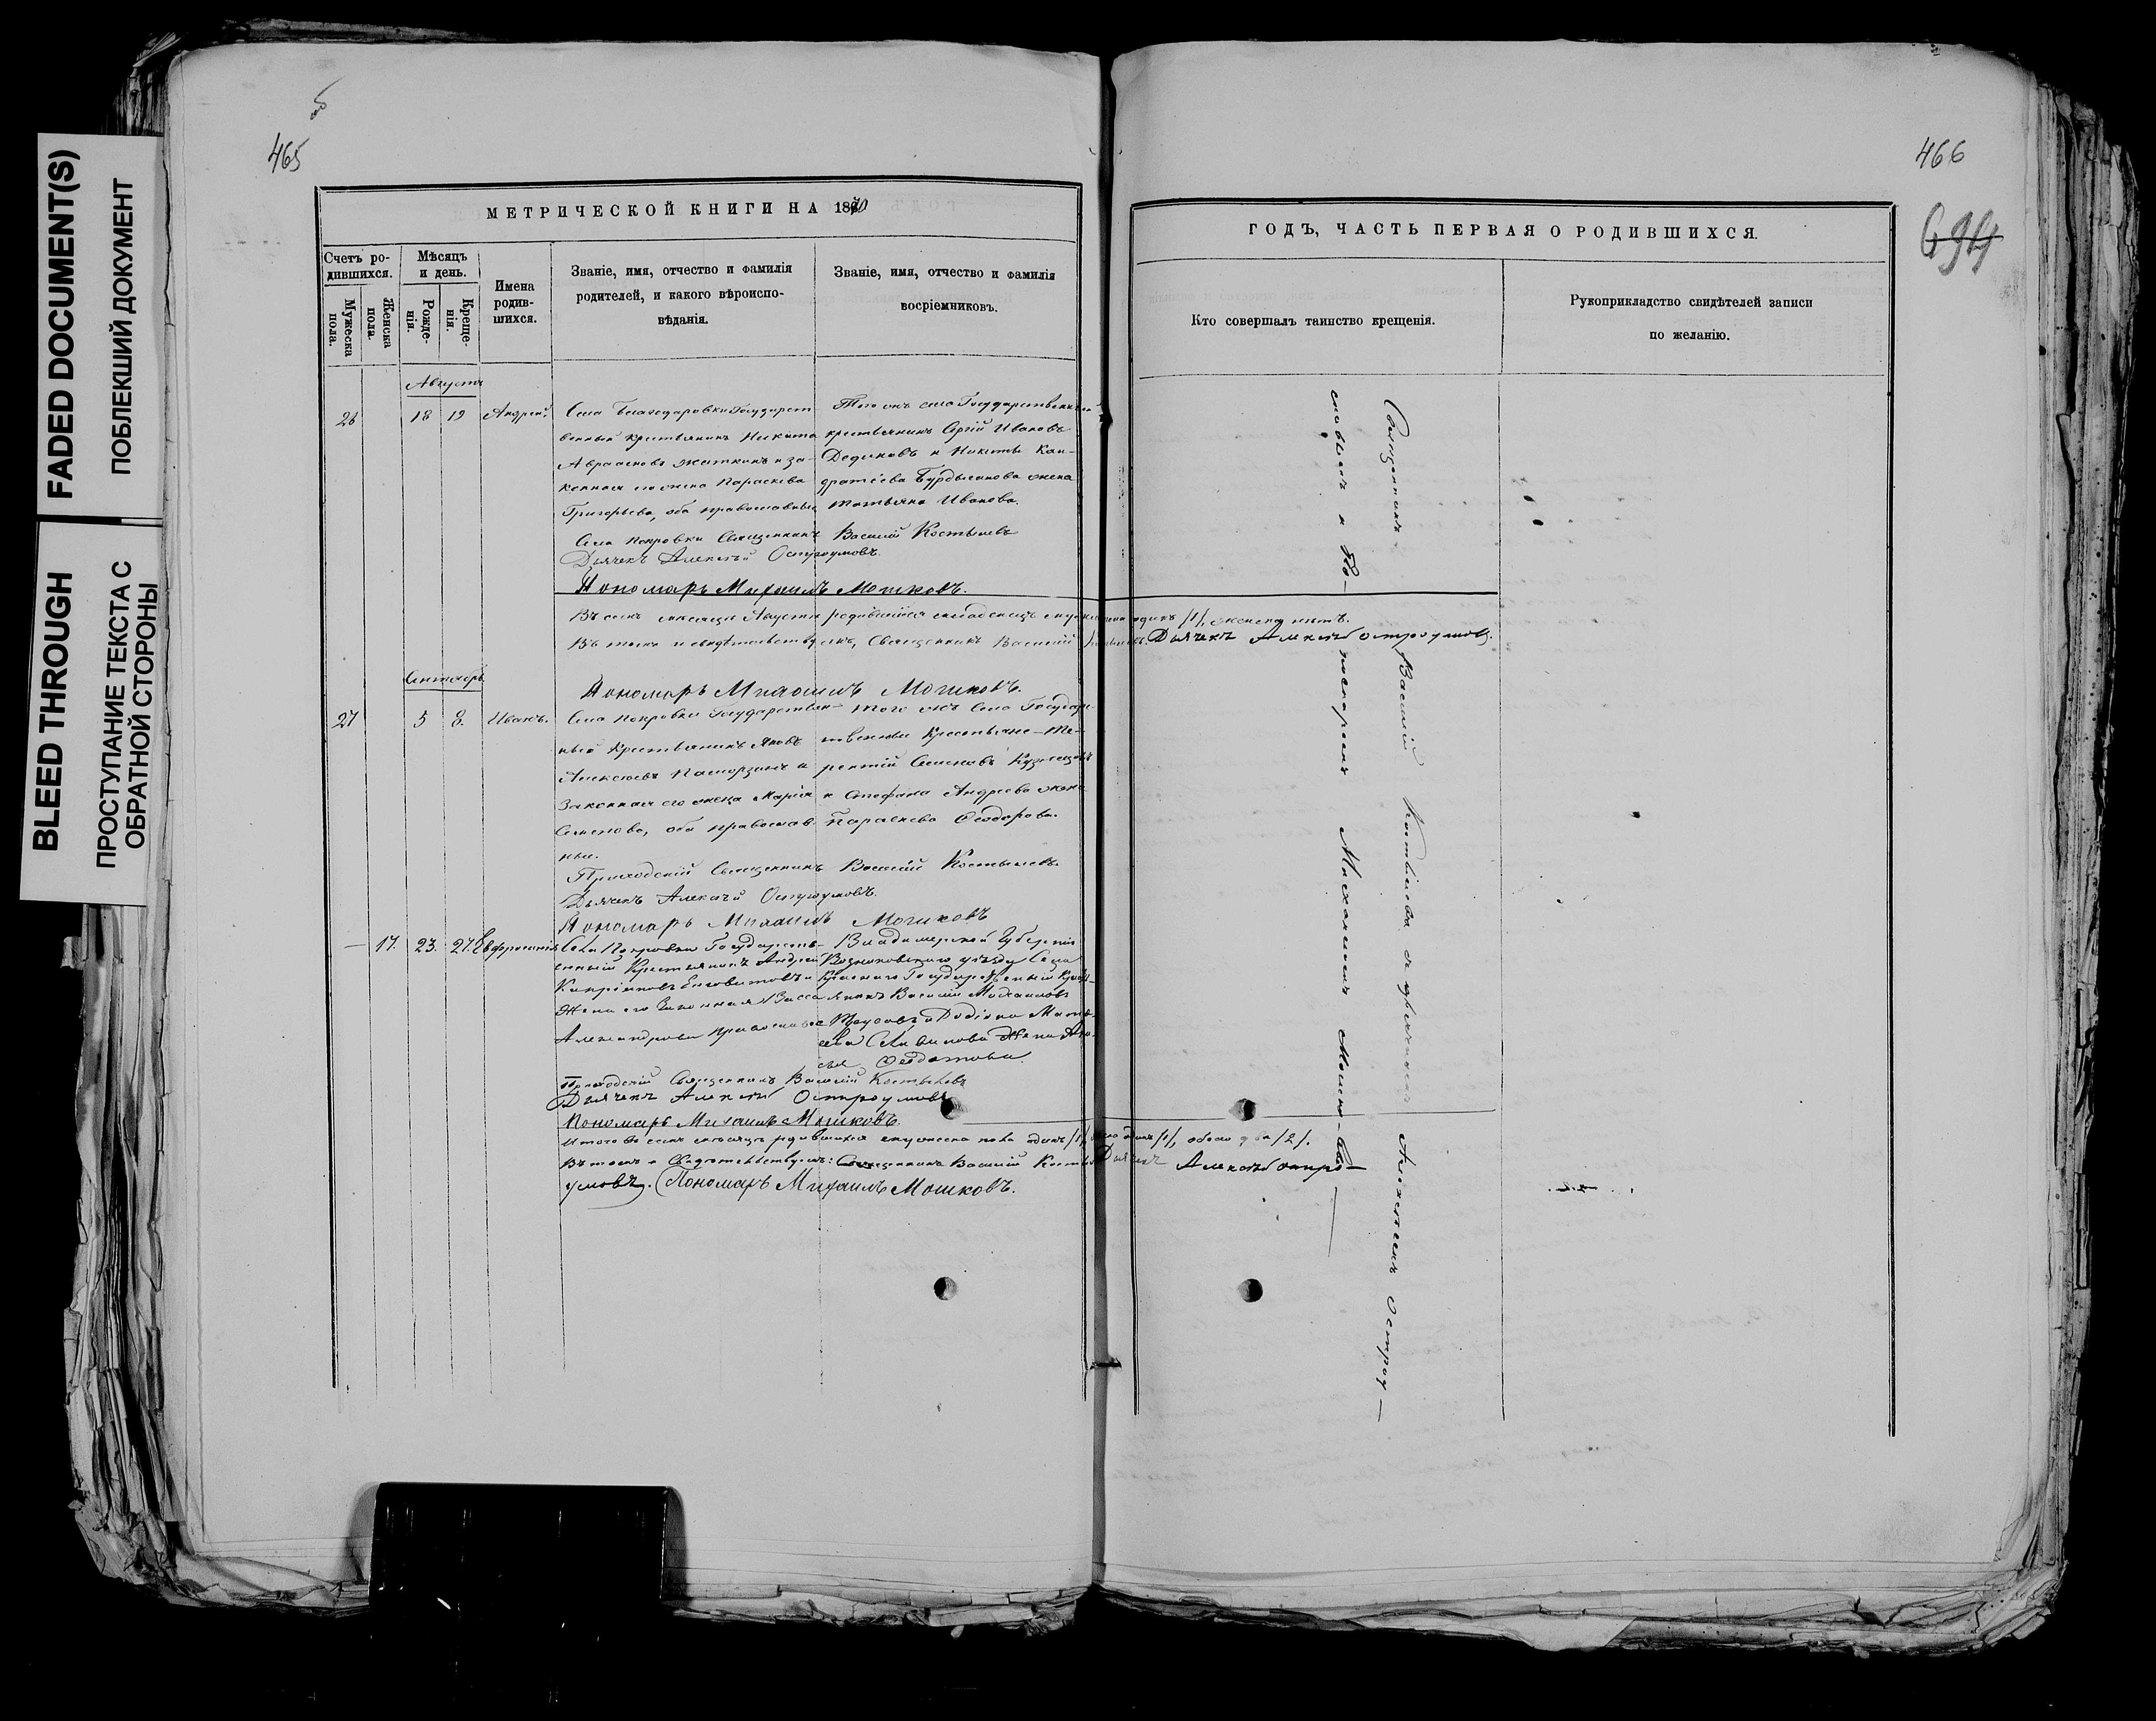 FADED DOCUMENT(S)
ПОБЛЕКШИЙ ДОКУМЕНТ
BLEED THROUGH
ПРОСТУПАНИЕ ТЕКСТА С
ОБРАТНОЙ СТОРОНЫ
об
465
МЕТРИЧЕСКОЙ КНИГИ НА 1870
Счетъ ро-
дившихся.
Мужеска
пола.
Женска
пола.
Мѣсяцъ
и день.
Рожде-
нія.
Креще-
нія.
Имена
родив-
шихся.
Званіе, имя, отчество и фамилія
родителей, и какого вѣроиспо-
вѣданія.
Званіе, имя, отчество и фамилія
воспріемниковъ.
Августъ
26
18
19
Андрей.
Села Благодаровки Государст
венный крестьянинъ Никита
Авраамовъ и за-
конная его жена Параскева
Григорьева, оба православные
Того жъ села Государственный
крестьянинъ Сергій Ивановъ
Дедиковъ и Никиты Кон-
дратіева жена
Татьяна Иванова.
Села Покровки Священникъ Василій Костылевъ
Дьячекъ Алексѣй Остроумовъ.
Пономарь Михаилъ Мошковъ.
Въ семъ месяце Августе родившихся младенецъ мужеска одинъ /1/, женска нетъ.
Въ томъ и свидѣтельствуемъ, Священникъ Василій Костылевъ. Дьячекъ Алексѣй Остроумовъ.
Сентябрь
Пономарь Михаилъ Мошковъ.
27
5
8.
Иванъ.
Села Покровки Государствен-
ный Крестьянинъ Яковъ
Алексѣевъ и
Законная его жена Марія
Семенова, оба православ-
ные.
Того жъ Села Государ-
ственные Крестьяне Те-
рентій Семеновъ Кузнецовъ
и Стефана Андреева жена
Параскева Ѳеодорова.
Приходскій Священникъ Василій Костылевъ.
Дьячекъ Алексѣй Остроумовъ.
Пономарь Михаилъ Мошковъ
17.
23.
27.
Евфросинія
Села Покровки Государств-
енный Крестьянинъ Андрей
Жена его Законная Васса
Александрова православные
Владимерской Губерніи
уезду Села
Государственный Крес-
янинъ Василій Михаиловъ
Жена
Ѳедотова.
Приходскій Священникъ Василій Костылевъ
Дьячекъ Алексѣй Остроумовъ
Пономарь Михаилъ Мошковъ.
Итого въ семъ месяцѣ родившихся мужеска пола одинъ /1/, женска одинъ /1/, обоего два /2/.
Въ томъ и Свидѣтельствуемъ: Священникъ Василій Костылевъ Дьячекъ Алексѣй Остро-
умовъ. Пономарь Михаилъ Мошковъ.
466
694
ГОДЪ, ЧАСТЬ ПЕРВАЯ О РОДИВШИХСЯ.
Кто совершалъ таинство крещенія.
Рукоприкладство свидѣтелей записи
по желанію.
Священникъ Василій Костылевъ съ дьячкомъ Алексѣемъ Остроу-
мовымъ и По- номаремъ Михаиломъ Мошко-вымъ